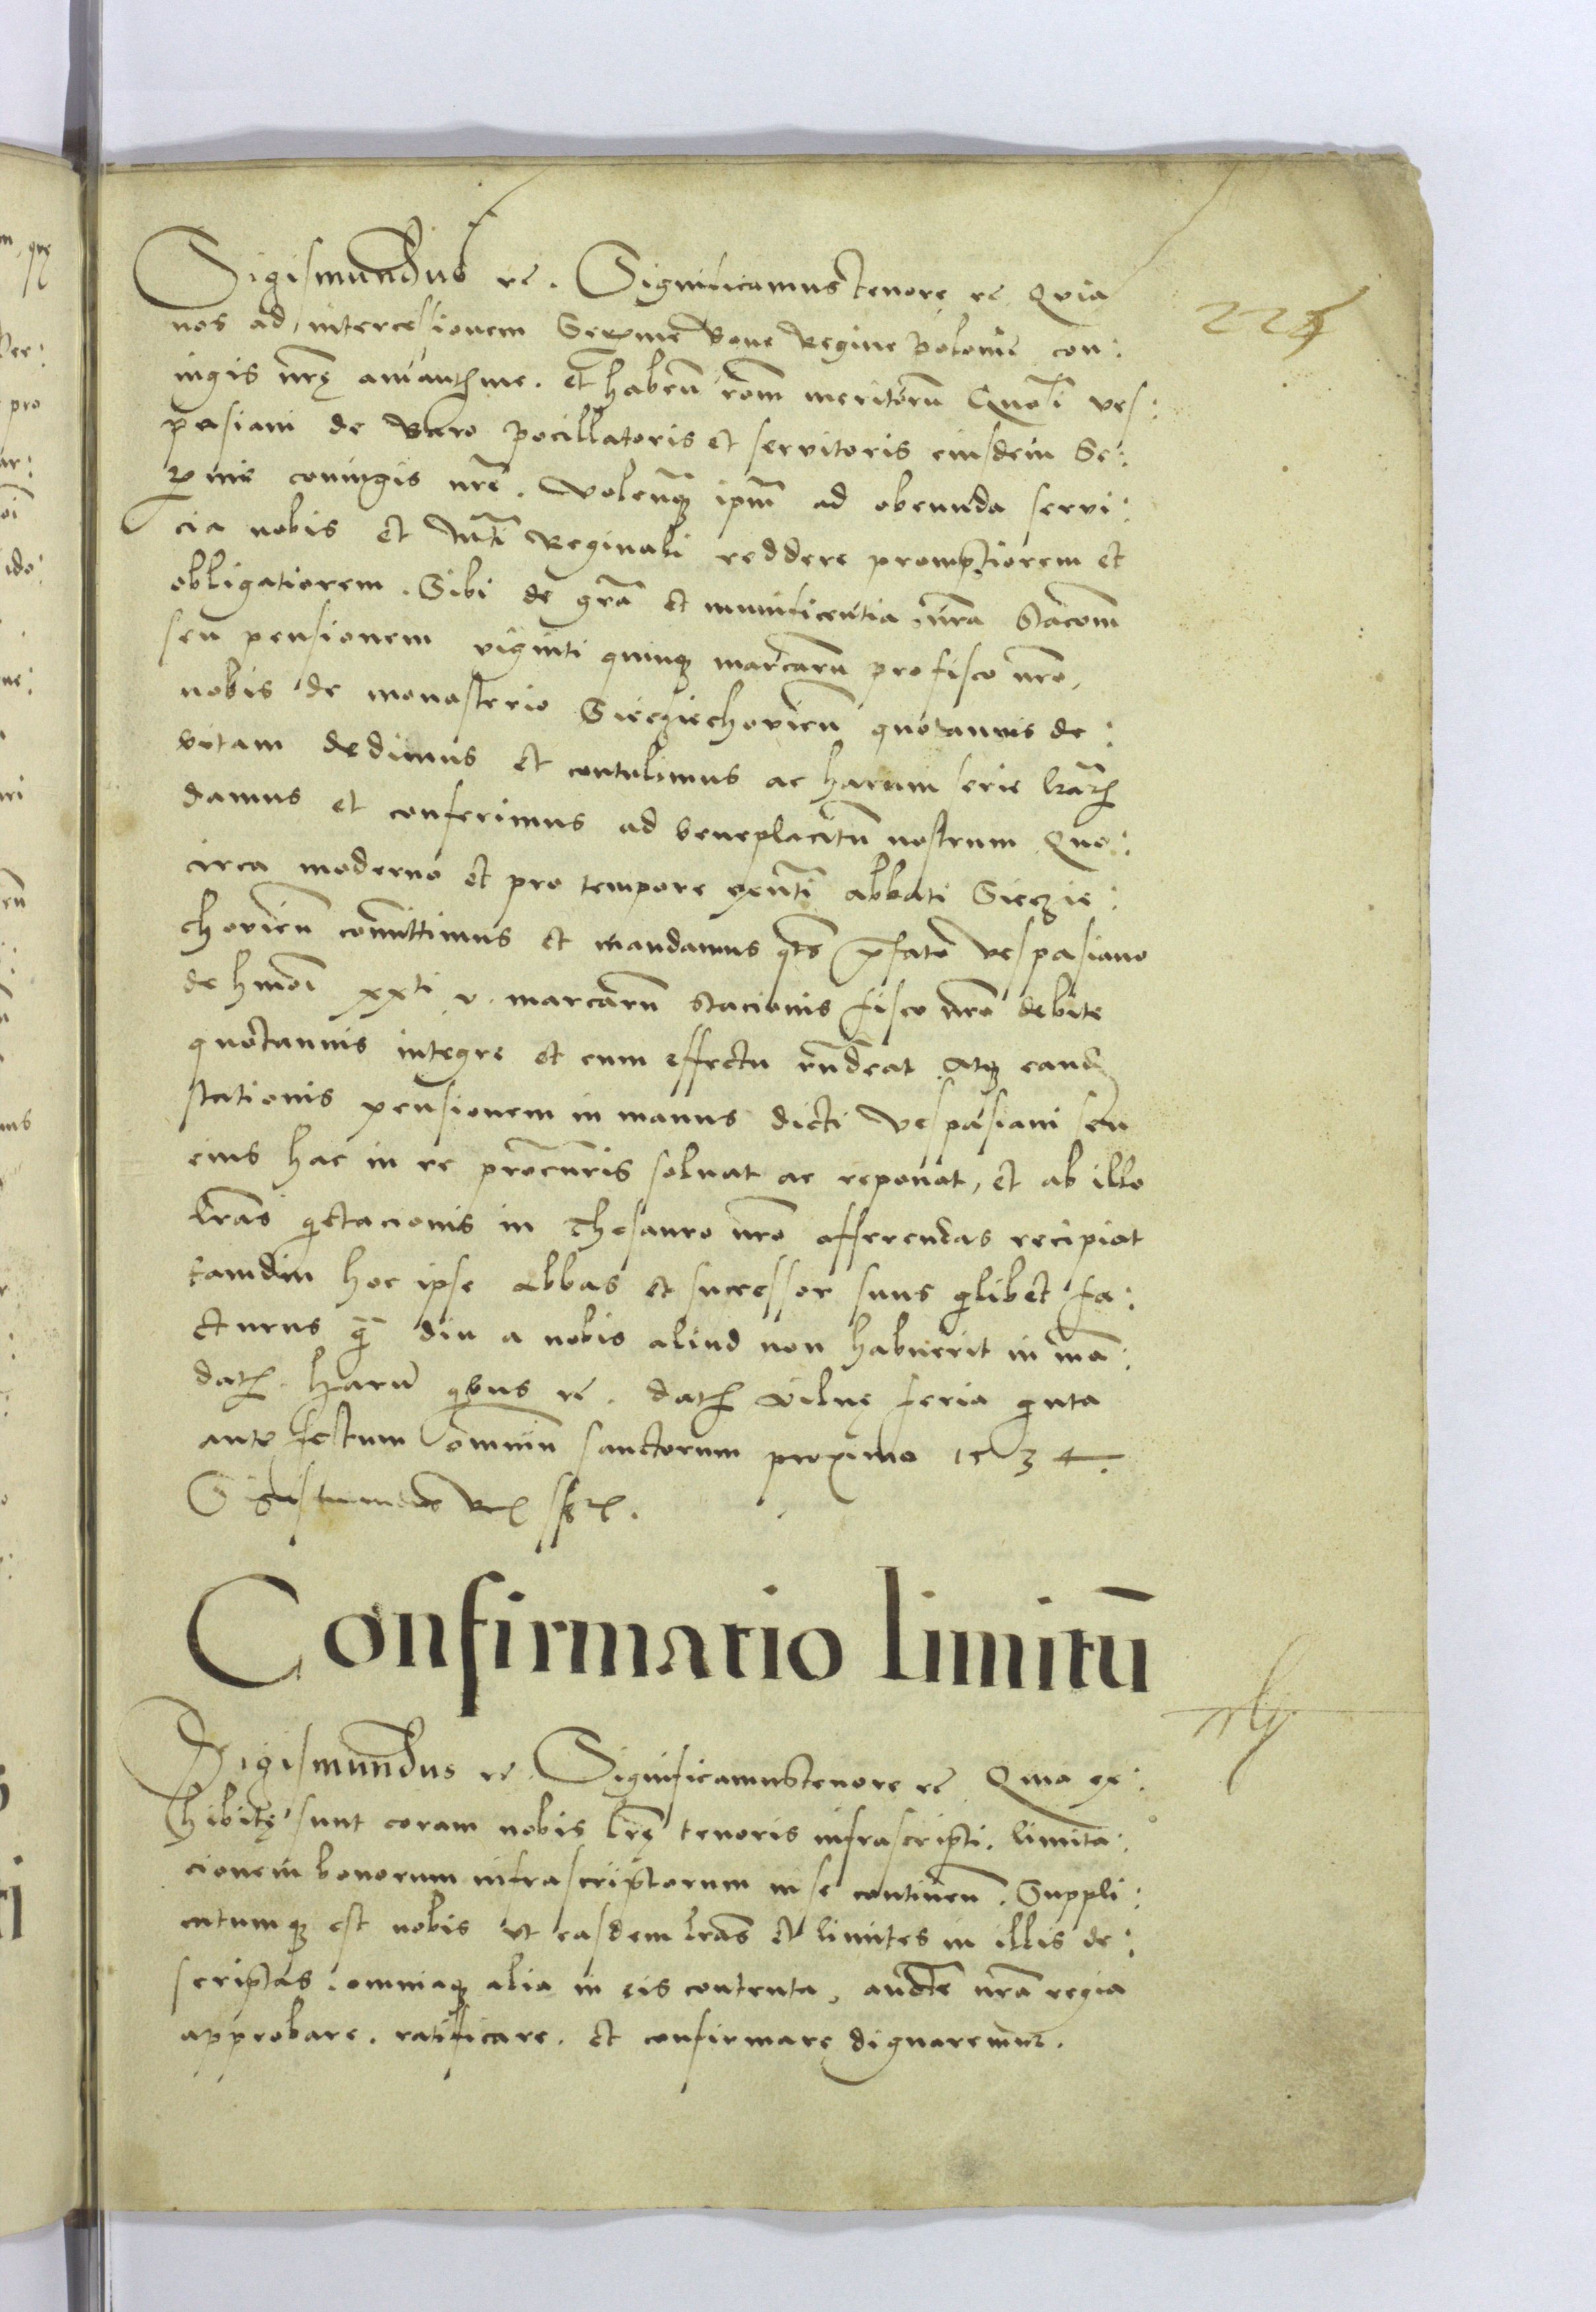 Sigismundus rc̄. Significamus tenore rc̄ Quia
225
nos ad intercessionem Serᵐᵉ Bone Regine Polonie con:
iugis nr̄ę amantiss̄me. et habeñ rōm meritorū Gnosi Ves:
pasiani de Baro Pocillatoris et servitoris eiusdem Se:
rᵐᵉ coniugis nr̄e. volen̄q₃ ip̄m ad obeunda servi:
cia nobis et Mt̄i Reginali reddere promptiorem et
obligatiorem. Sibi de gr̄a et munificentia nr̄a stacōm
seu pensionem viginti quinq₃ marcarū pro fisco nr̄o,
nobis de monasterio Sieciechovieñ quotannis de:
bitam dedimus et contulimus ac harum serie lr̄aꝝ
damus et conferimus ad beneplacitū nostrum Quo:
circa moderno et pro tempore exn̄ti abbati Siecie:
chovieñ com̄ittimus et mandamus qts̄ p̄fato Vespasiano
de hmōi xxti v. marcarū stacionis fisco nr̄o debite
quotannis integre et cum effectu rn̄deat Atq₃ eand
stationis pensionem in manus dicti Vespasiani seu
eius hac in re procur̄is solvat ac reponat, et ab illo
lr̄as qctacionis in Thesauro nr̄o afferendas recipiat
tamdiu hoc ipse abbas et successor suus qlibet fa:
cturus q̄ diu a nobis aliud non habuerit in mā:
datꝭ. Harū qbus rc̄. datꝭ Vilnę feria qnta
ante festum omniū sanctorum proximo 1534.
Sigismundus Rex sst.
Confirmatio limitū
Sigismundus rc̄. Significamus tenore rc̄ Quia ex:
hibitę sunt coram nobis lr̄ę tenoris infrascripti. limita:
cionem bonorum infrascriptorum in se contineñ. Suppli:
catumq₃ est nobis ut easdem lr̄as et limites in illis de:
scriptas. omniaq₃ alia in eis contenta, aucte nr̄a regia
approbare. ratificare. et confirmare dignaremur.